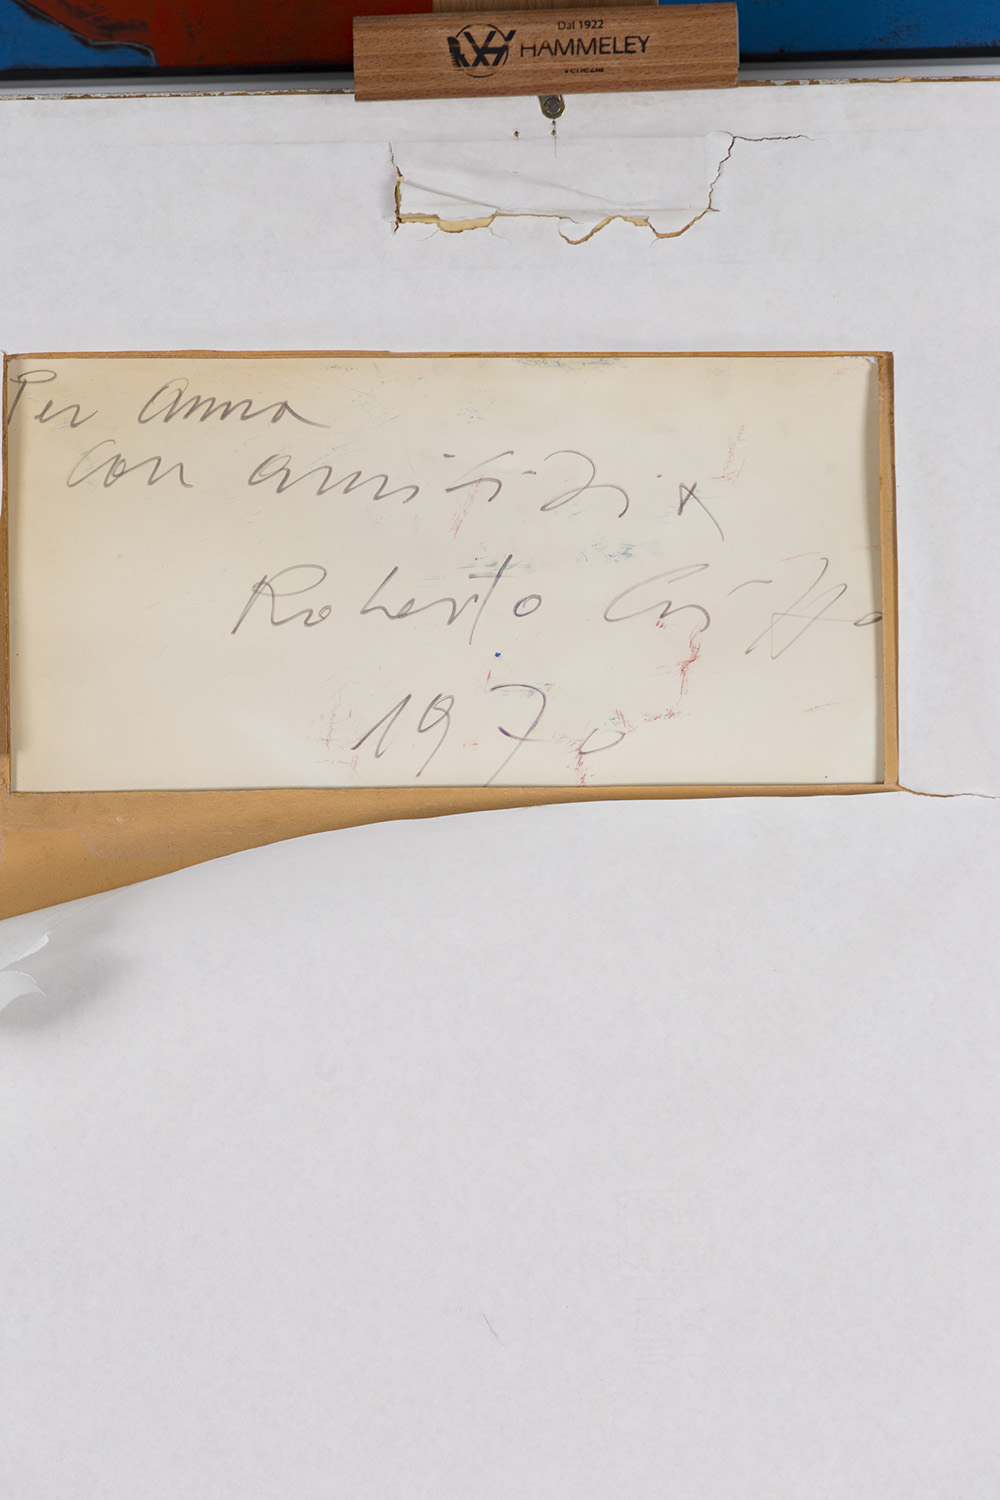 Dal 1922
HAMMELEY
VENEZIA
Per Anna
con amicizia
Roberto Crippa
1970